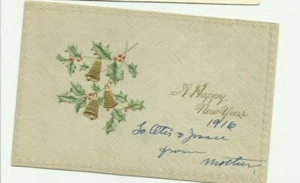 A Happy
New Year.
1916
To Otis & Jessie
from
Mother